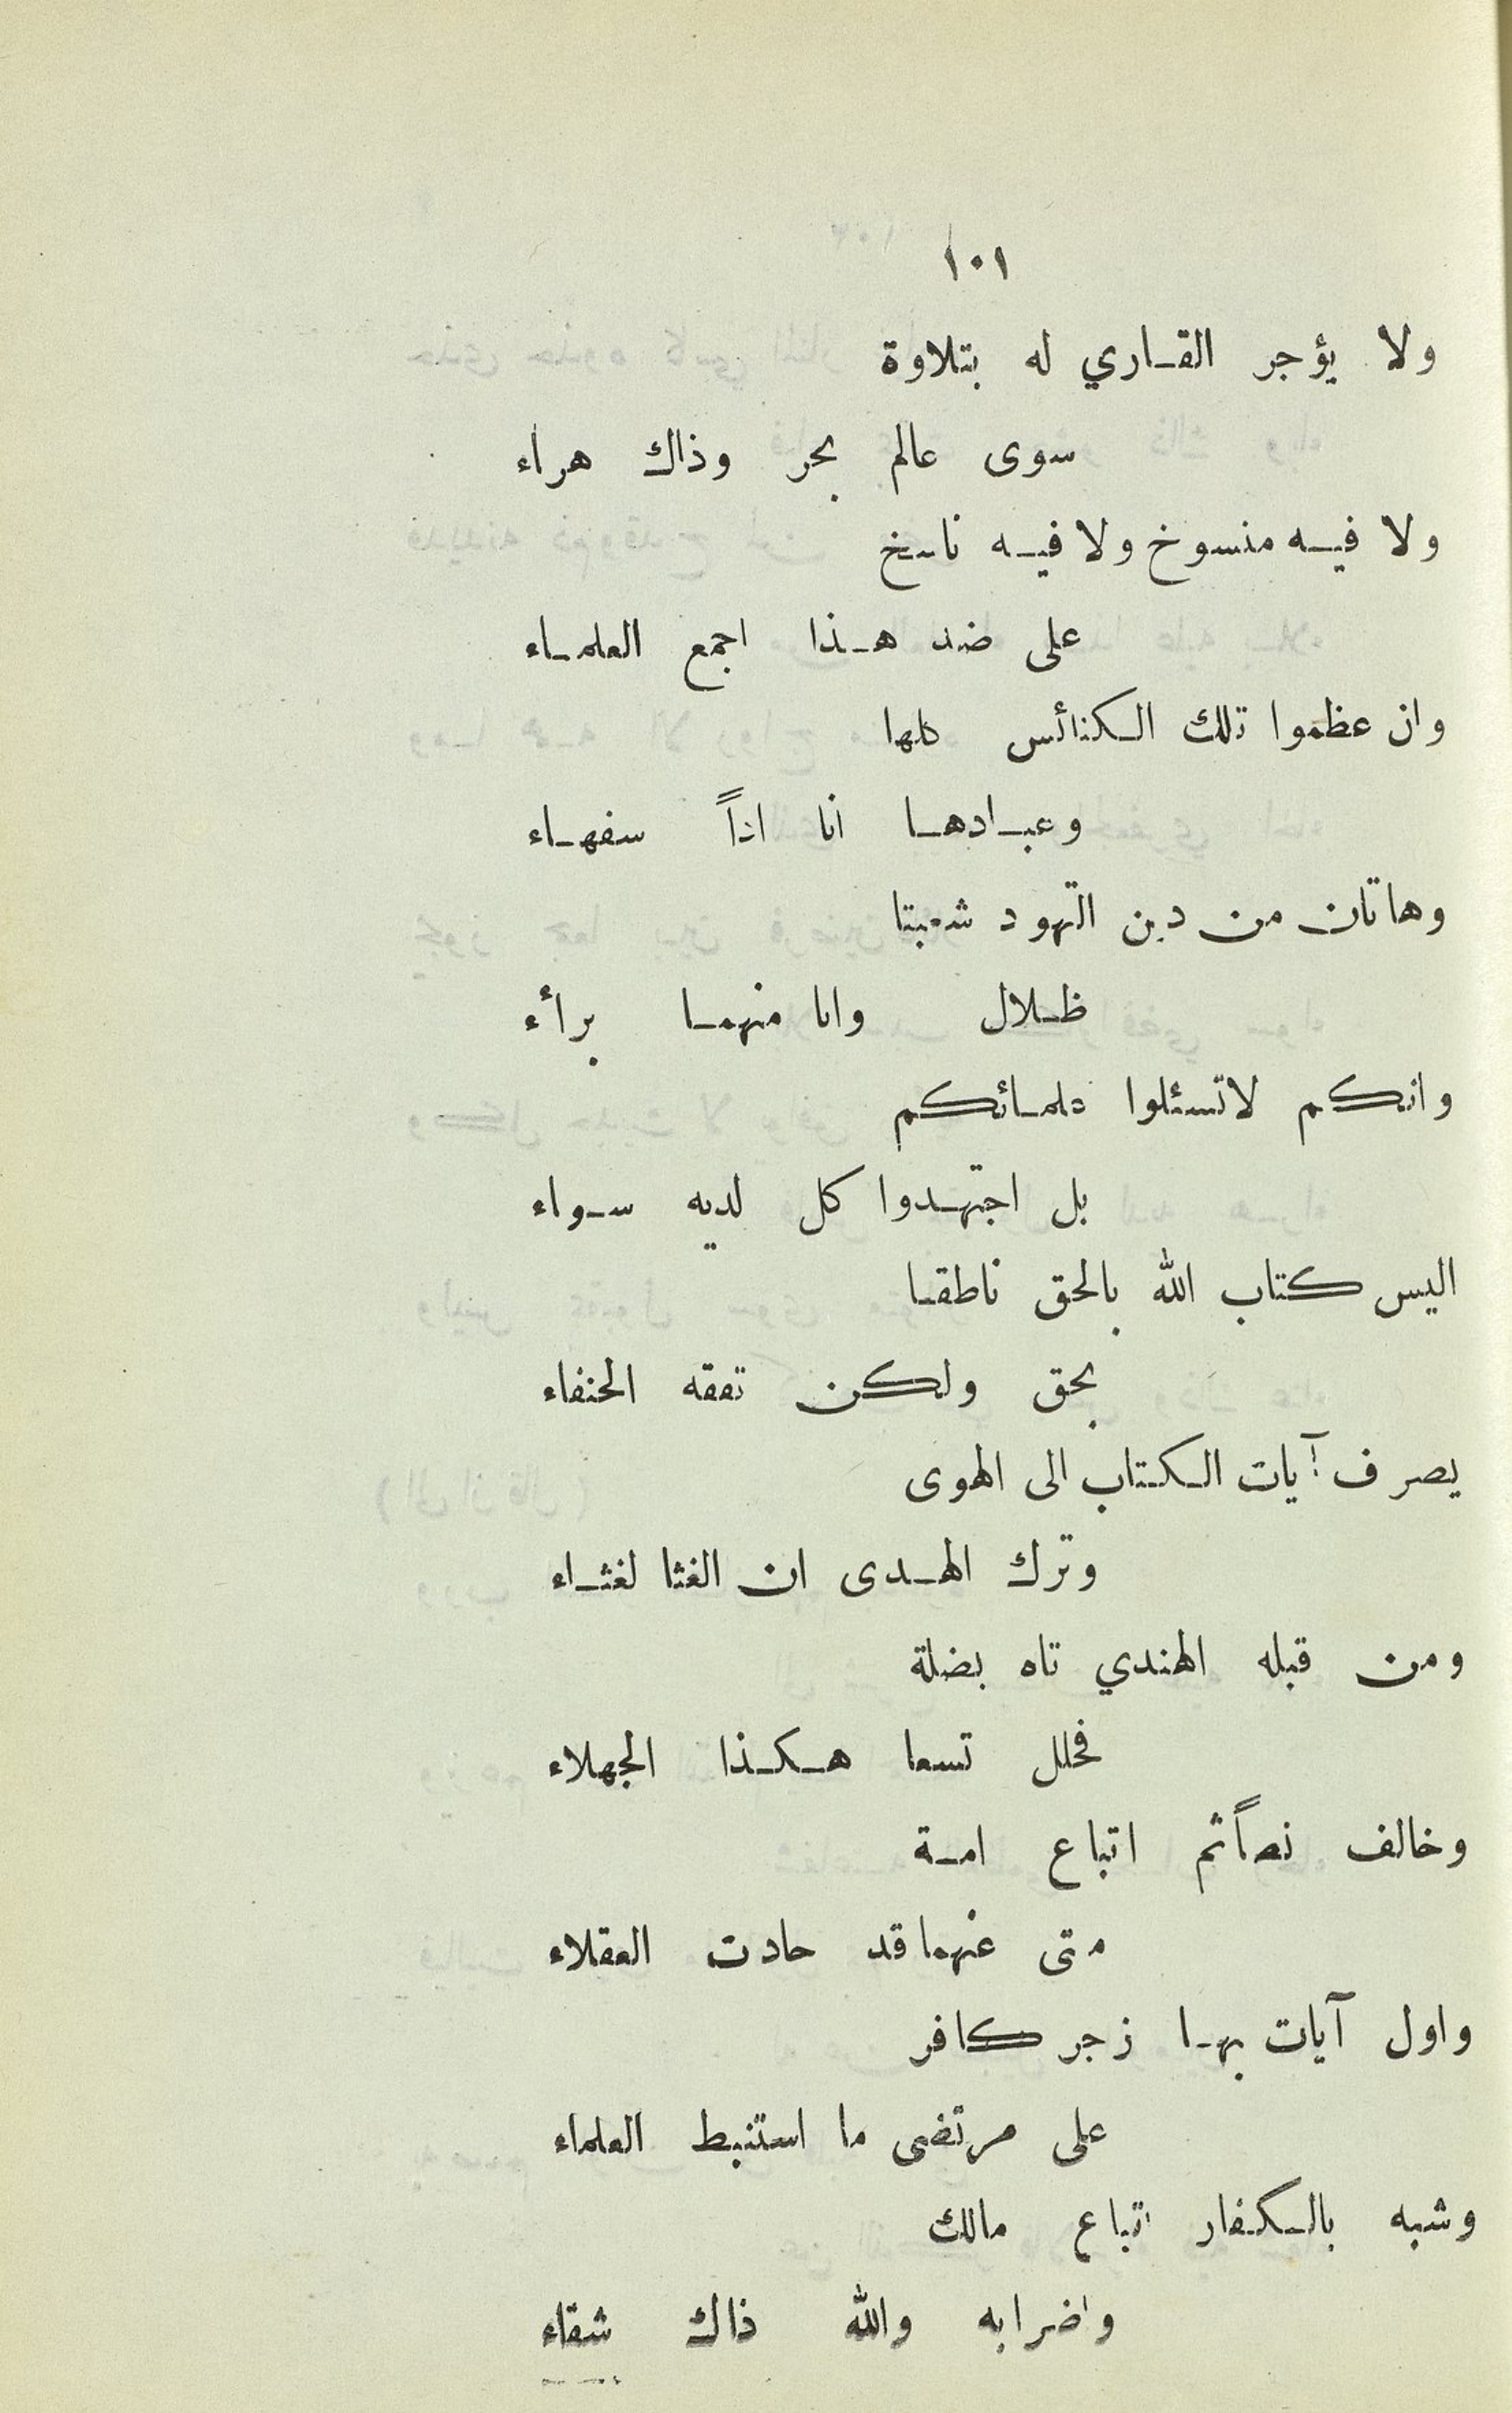 ١٠١
ولا يؤجر القاري له بتلاوة
سوى عالم بحر وذاك هراء
ولا فيه منسوخ ولا فيه ناسخ
على ضد هذا اجمع العلماء
وان عظموا تلك الكنائس كلها
وعبادها انا اذاً سفهاء
وهاتان من دين التهود شعبتا
ظلال وانا منهما برأء
وانكم لاتسئلوا علمائكم
بل اجتهدوا كل لديه سواء
اليس كتاب الله بالحق ناطقا
بحق ولكن تفقه الحنفاء
يصرف آيات الكتاب الى الهوى
وترك الهدى ان الغثا لغثاء
ومن قبله الهندي تاه بضلة
فحلل تسعا هكذا الجهلاء
وخالف نصاً ثم اتباع امة
متى عنهما قد حادت العقلاء
واول آيات بها زجر كافر
على مرتضى ما استنبط العلماء
وشبه بالكفار اتباع مالك
واضرابه والله ذاك شقاء